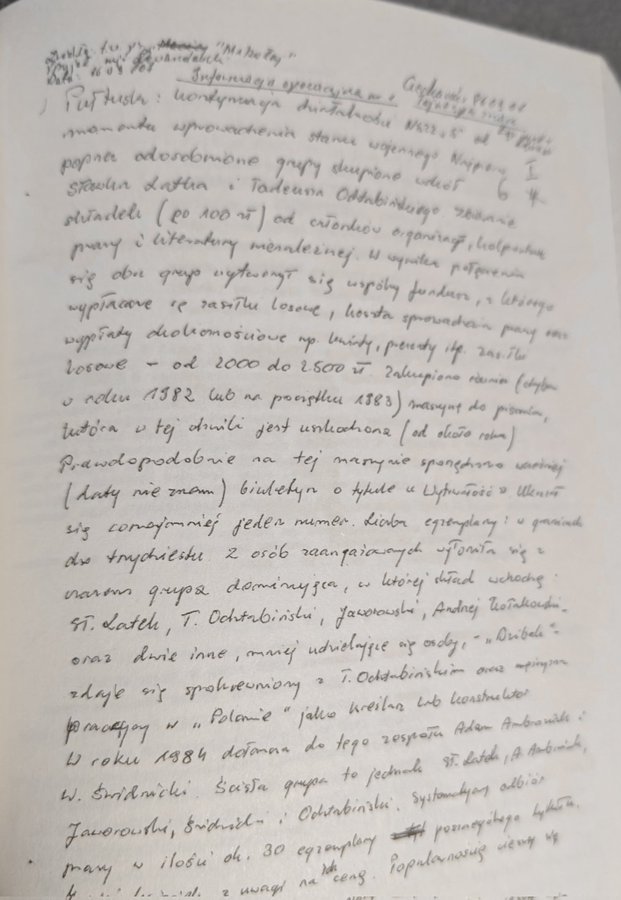 "Mikołaj"
Informacja operacyjna nr
Pułtusk: kontynuacja działalności NSZZ „S" od
momentu wprowadzenia stanu wojennego. Najpierw I
poprzez odosobnione grupy skupione wokół
Sławka Latka i Tadeusza Ochtabińskiego zbieranie
składek (po 100 zł) od członków organizacji, kolportaż
prasy i literatury niezależnej. W wyniku połączenia
się obu grup wytworzył się wspólny fundusz, z którego
wypłacane są zasiłki losowe, koszta sprowadzenia prasy oraz
wypłaty okolicznościowe np. kwiaty, prezenty itp. zasiłki
losowe – od 2000 do 2.500 zł. Zakupiono również (chyba
w roku 1982 lub na początku 1983) maszynę do pisania,
która w tej chwili jest uszkodzona (od około roku)
Prawdopodobnie na tej maszynie sporządzano wcześniej
(daty nie znam) biuletyn o tytule „Wytrwałość". Ukazał
się conajmniej jeden numer. Liczba egzemplarzy: w granicach
do trzydziestu. Z osób zaangażowanych wyłoniła się z
czasem grupa dominująca, w której skład wchodzą:
St. Latek, T. Ochtabiński, Jaworowski, Andrzej Kołakowski
oraz dwie inne, mniej udzielające się osoby, – „Dzibek"-
zdaje się spokrewniony z T. Ochtabińskim oraz mężczyzna
pracujący w „Polamie" jako kreślarz lub konstruktor
W roku 1984 dołącza do tego zespołu Adam Ambroziak i
W. Świdnicki. Ścisła grupa to jednak St. Latek, A. Ambroziak,
Jaworowski, Świdnicki i Ochtabiński. Systematyczny odbiór
prasy w ilości ok. 30 egzemplarzy poszczególnego tytułu.
z uwagi na ich cenę. Popularnością cieszy się